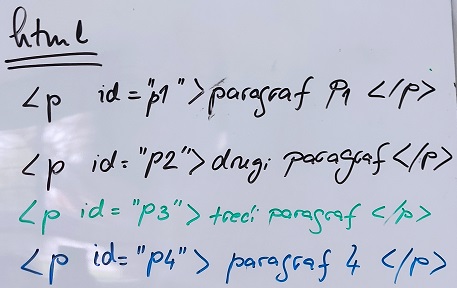 html
<p id="p1">paragraf p1 </p>
<p id="p2">drugi paragraf</p>
<p id="p3"> treći paragraf </p>
<p id="p4"> paragraf 4 </p>